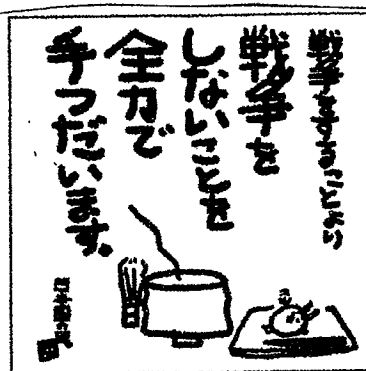 戦争をすることより
戦争を
しないことを
全力で
手つだいます。